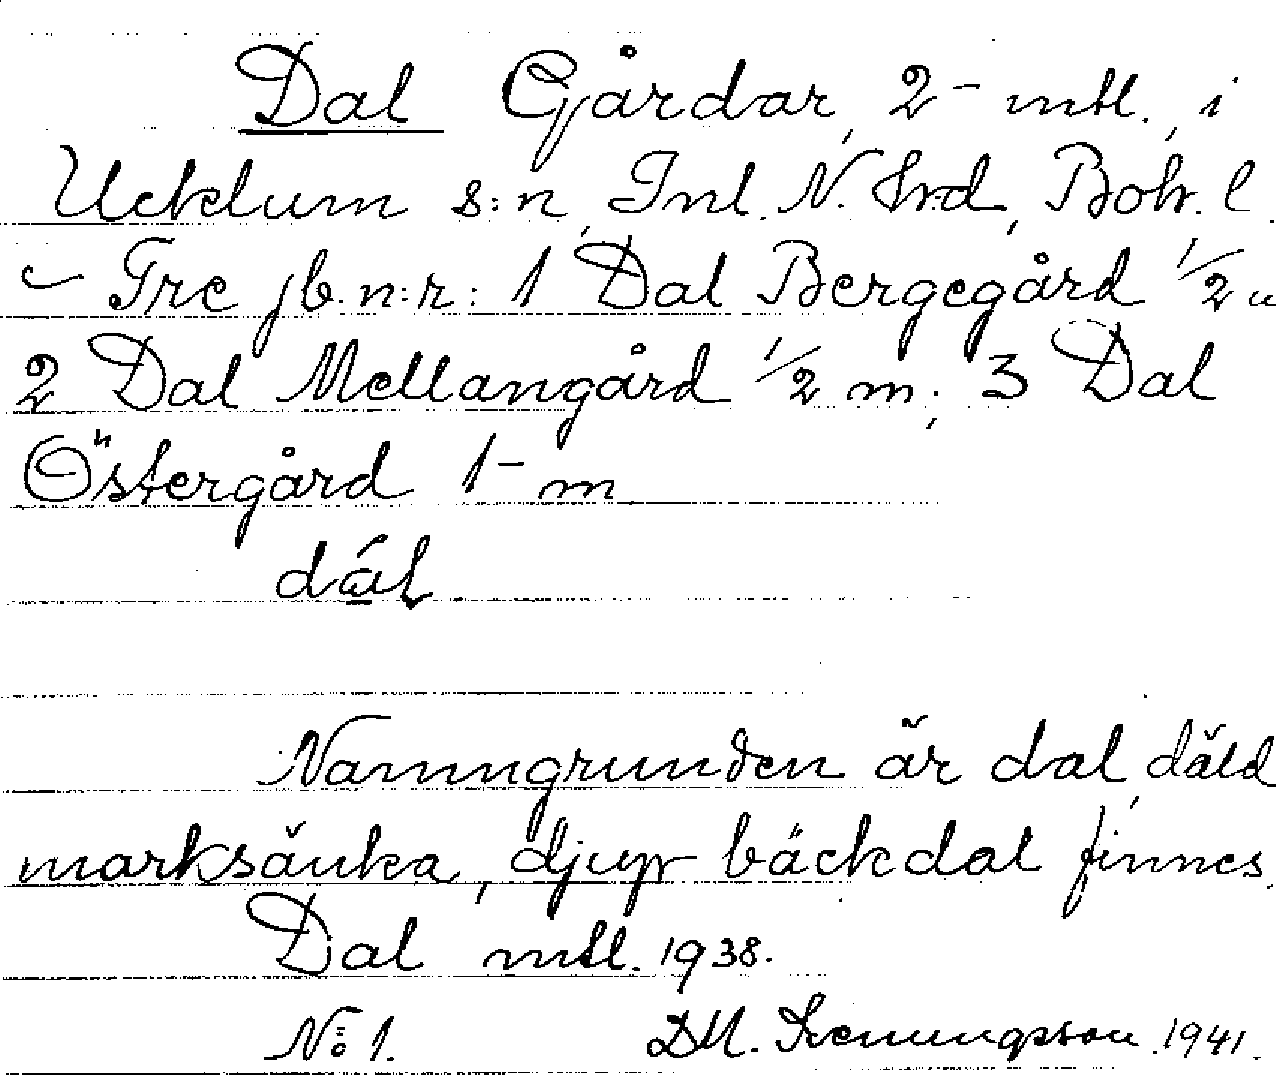 Dal Gårdar, 2- mtl., i
Ucklum s:n, Inl. N. Hrd, Boh. l.
- Tre jb.n:r: 1 Dal Bergegård 1/2 m
2 Dal Mellangård 1/2 m; 3 Dal
Östergård 1- m
dál
Namngrunden är dal, däld
marksänka, djup bäckdal finnes.
Dal mtl. 1938.
No 1. 1941.